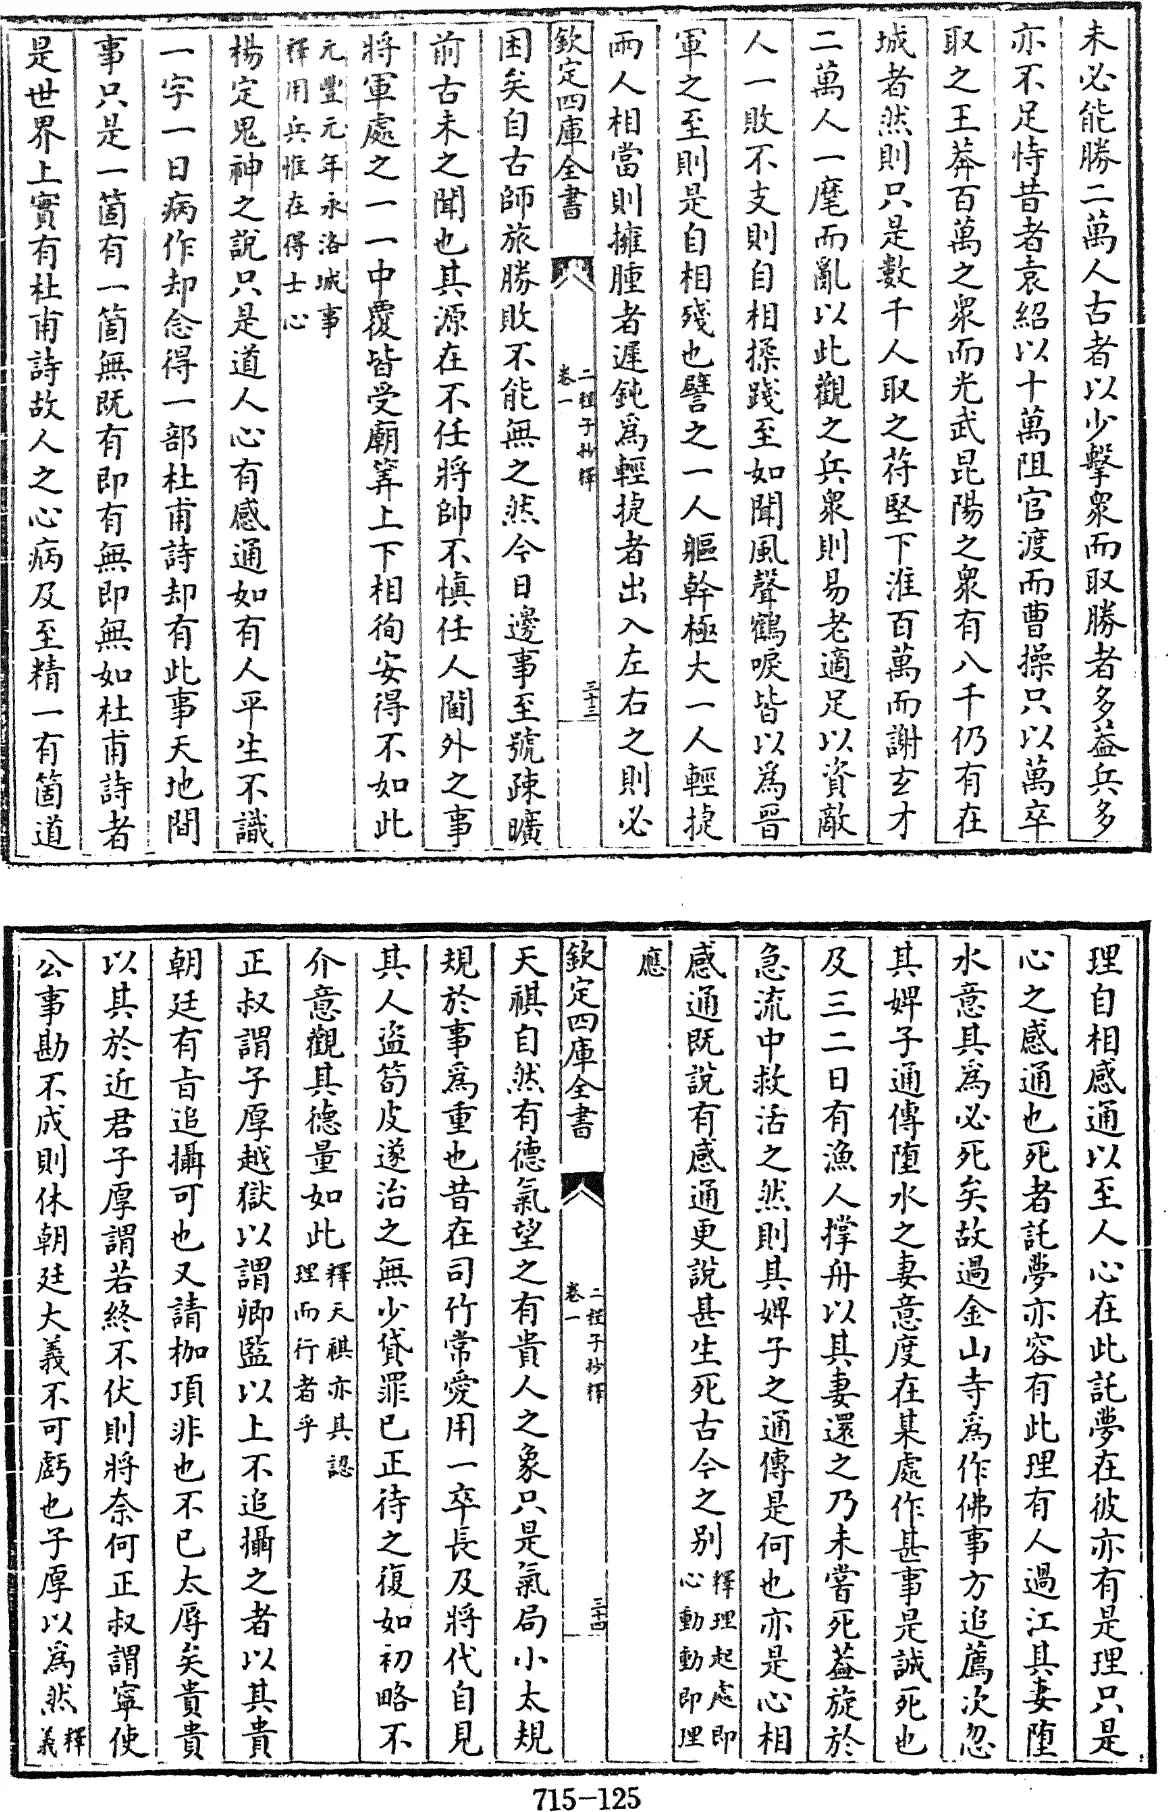 未必能勝二萬人古者以少擊衆而取勝者多葢兵多
亦不足恃昔者袁紹以十萬阻官渡而曹操只以萬卒
取之王莽百萬之衆而光武昆陽之衆有八千仍有在
城者然則只是數千人取之苻堅下淮百萬而謝玄才
二萬人一麾而亂以此觀之兵衆則易老適足以資敵
人一敗不支則自相揉踐至如聞風聲鶴唳皆以爲晉
軍之至則是自相殘也譬之一人軀幹極大一人輕捷
兩人相當則擁腫者遲鈍爲輕捷者出入左右之則必
欽定四庫全書
二程子抄釋
卷一
三十三
困矣自古師旅勝敗不能無之然今日邊事至號疎曠
前古未之聞也其源在不任將帥不慎任人閫外之事
將軍處之一一中覆皆受廟筭上下相徇安得不如此
元豐元年永洛城事
釋用兵惟在得士心
楊定鬼神之說只是道人心有感通如有人平生不識
一字一日病作却念得一部杜甫詩却有此事天地間
事只是一箇有一箇無既有即有無即無如杜甫詩者
是世界上實有杜甫詩故人之心病及至精一有箇道
理自相感通以至人心在此託夢在彼亦有是理只是
心之感通也死者託夢亦容有此理有人過江其妻墮
水意其爲必死矣故過金山寺爲作佛事方追薦次忽
其婢子通傳墮水之妻意度在某處作甚事是誠死也
及三二日有漁人撑舟以其妻還之乃未嘗死葢旋於
急流中救活之然則其婢子之通傳是何也亦是心相
感通既說有感通更說甚生死古今之别
釋理起處即
心動動即理
應
欽定四庫全書
二程子抄釋
卷一
三十四
天祺自然有德氣望之有貴人之象只是氣局小太規
規於事爲重也昔在司竹常愛用一卒長及將代自見
其人盜筍皮遂治之無少貸罪已正待之復如初略不
介意觀其德量如此
釋天祺亦其認
理而行者乎
正叔謂子厚越獄以謂卿監以上不追攝之者以其貴
朝廷有旨追攝可也又請枷項非也不已太辱矣貴貴
以其於近君子厚謂若終不伏則將奈何正叔謂寧使
公事勘不成則休朝廷大義不可虧也子厚以爲然
釋
義
715-125